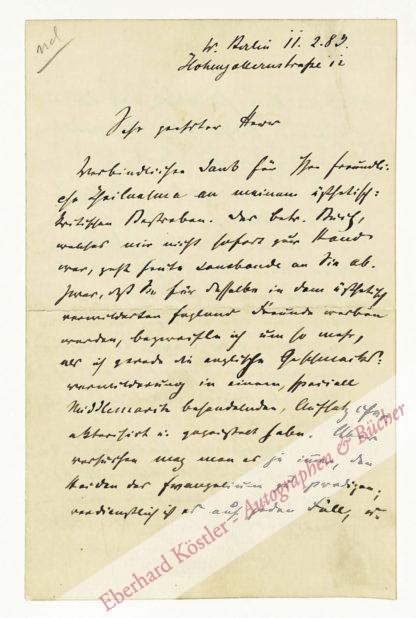 nd
W. Berlin 11.2.83.
Hohenzollernstraße 12
Sehr geehrter Herr
Verbindlichen Dank für Ihre freundli-
che Theilnahme an meinem ästhetisch-
kritischen Bestreben. Das betr. Buch,
welches mir nicht sofort zur Hand
war, geht heute Kreuzbande an Sie ab.
Zwar, daß Sie für dasselbe in dem ästhetisch
verwilderten England Freunde werben
werden, bezweifle ich um so mehr,
als ich gerade die englische Geschmacks-
verwilderung in einem, speciell
Middlemarch behandelnden, Aufsatz char-
akterisirt u. gegeißelt habe.
versuchen mag man es ja immer, den
Heiden das Evangelium zu predigen;
verdienstlich ist es auf jeden Fall, u.
Eberhard Köstler Autographen & Bücher